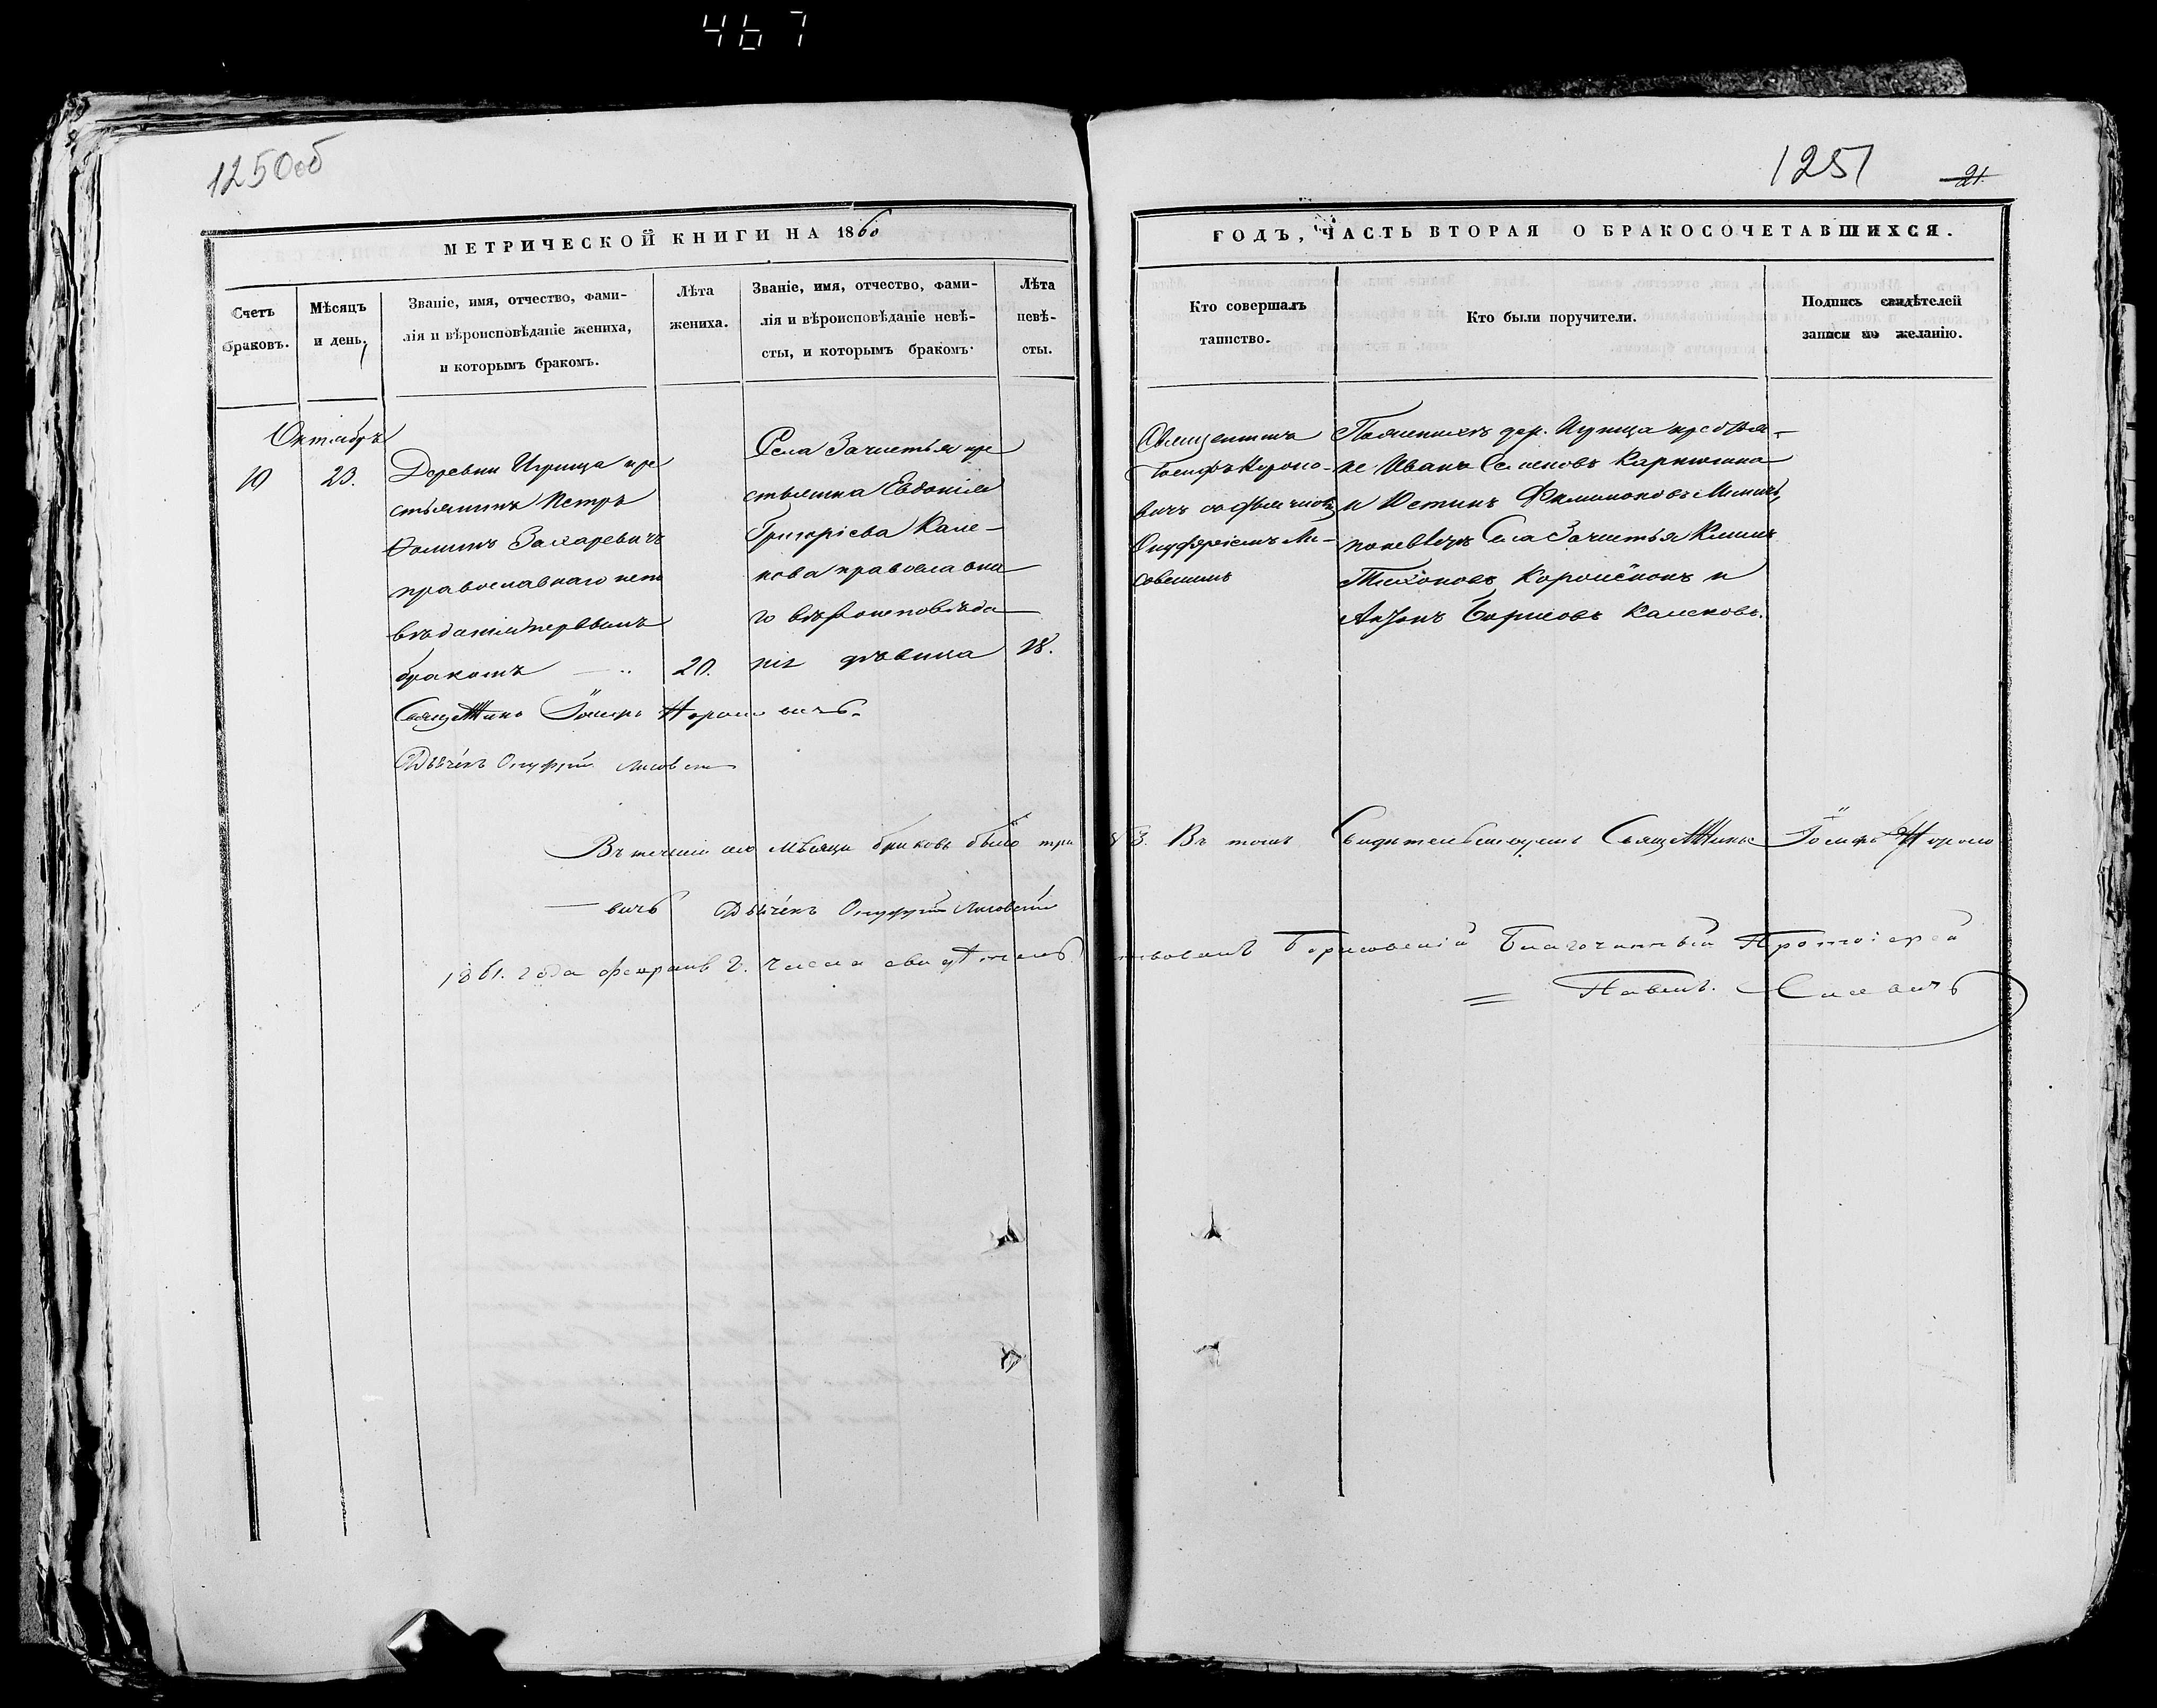 467
1250об
1251
21.
МЕТРИЧЕСКОЙ КНИГИ НА 1860
ГОДЪ, ЧАСТЬ ВТОРАЯ О БРАКОСОЧЕТАВШИХСЯ.
Счетъ
браковъ.
Мѣсяцъ
и день.
Званіе, имя, отчество, фами-
лія и вѣроисповѣданіе жениха,
и которымъ бракомъ.
Лѣта
жениха.
Званіе, имя, отчество, фами-
лія и вѣроисповѣданіе невѣ-
сты, и которымъ бракомъ.
Лѣта
невѣ-
сты.
Кто совершалъ
таинство.
Кто были поручители.
Подпись свидѣтелей
записи по желанію.
Октябрь
10
23.
Деревни Игрища кре
стьянинъ Петръ
Ѳоминъ Захаревичъ
православнаго испо
вѣданія первымъ
бракомъ
20.
Села Зачистья кре
стьянка Евдокія
Григорієва
православна
го вѣроисповѣда
нія дѣвица
18.
Священникъ
Іосифъ
вичъ съ дьячкомъ
Онуфріемъ Ли-
совскимъ
дер. Игрища крестья-
не Иванъ Семеновъ
и Устинъ Филимоновъ
Села Зачистья Климъ
Тихоновъ и
Борисовъ
Священникъ Іосифъ
Дьячекъ Онуфрій Лисовскій
Въ теченіи сего мѣсяца браковъ было три 3. Въ томъ Священникъ Іосифъ
вичъ Дьячекъ Онуфрій Лисовскій
1861. года числа Борисовскій Благочинный Протоіерей
Павелъ